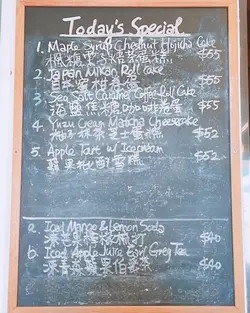 Today's Special
1. Maple Syrup Chestnut Hojicha Cake
$55
2. Japan Mikan Roll Cake
日本蜜柑卷蛋
$55
3. Sea Salt Caramel Coffee Roll Cake
海鹽焦糖咖啡卷蛋
$55
4. Yuzu Cream Matcha Cheesecake
柚子抹茶芝士蛋糕
$52
5. Apple Tart w/ Icecream
$52
a. Iced Mango & Lemon Soda
$40
b. Iced Apple Juice Earl Grey Tea
$40